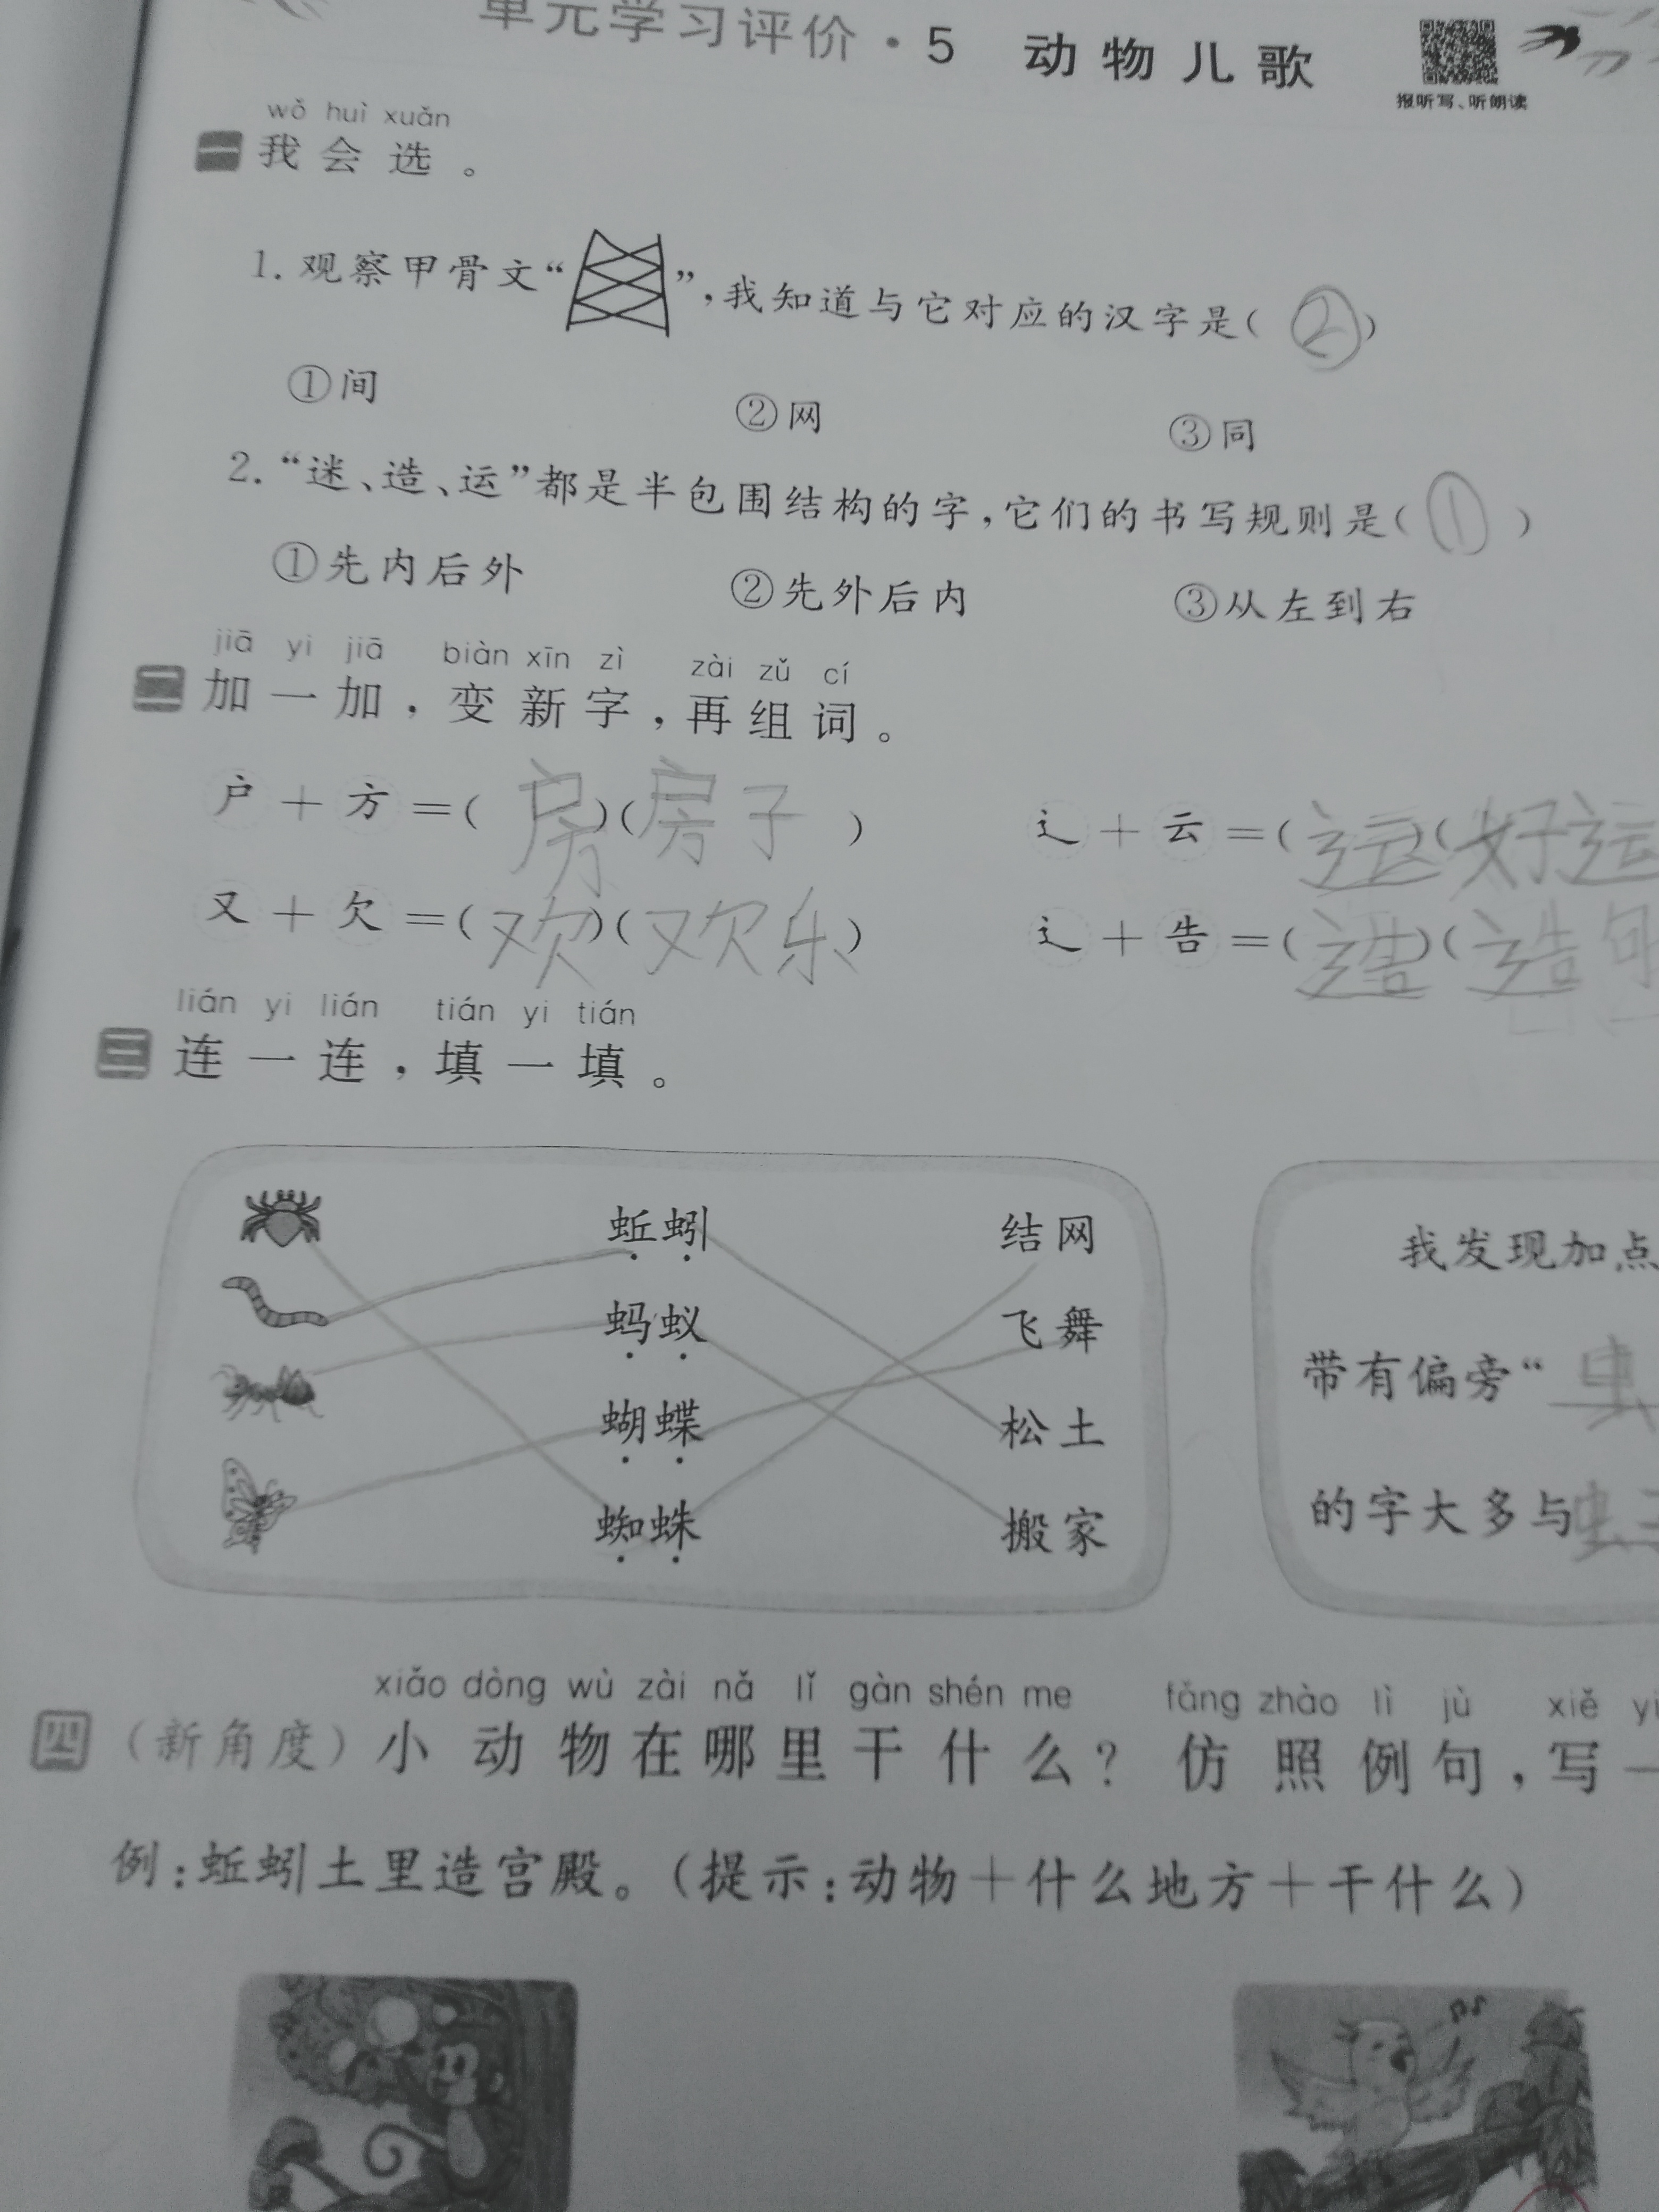 单元学习评价·5 动物儿歌
报听写、听朗读
wǒ huì xuǎn
一 我会选。
1. 观察甲骨文“ ”,我知道与它对应的汉字是( ② )
①间 ②网 ③同
2. “迷、造、运”都是半包围结构的字,它们的书写规则是( ① )
①先内后外 ②先外后内 ③从左到右
jiā yi jiā biàn xīn zì zài zǔ cí
二 加一加,变新字,再组词。
户+方=(房)(房子) 辶+云=(运)(好运
又+欠=(欢)(欢乐) 辶+告=(造)(造句
lián yi lián tián yi tián
三 连一连,填一填。
蚯蚓 结网 我发现加点
蚂蚁 飞舞
带有偏旁“虫
蝴蝶 松土
蜘蛛 搬家 的字大多与虫
xiǎo dòng wù zài nǎ lǐ gàn shén me fǎng zhào lì jù xiě yi
四 (新角度)小动物在哪里干什么?仿照例句,写一
例:蚯蚓土里造宫殿。(提示:动物+什么地方+干什么)